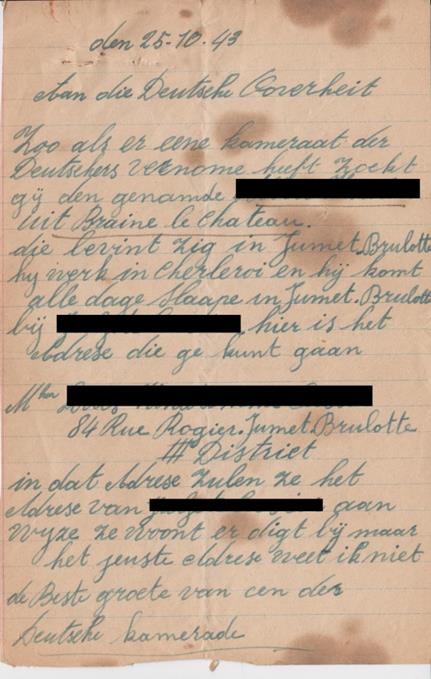 den 25-10.43
Aan die Deutsche Overheit
Zoo als er eene kameraat der
Deutschers vernome heeft Zoekt
gij den genamde
uit Braine le Chateau.
die bevint zig in Jumet.Brulotte
hy werk in Cherleroi en hij komt
alle dage Slaape in Jumet.Brulotte
bij hier is het
Adrese die ge kunt gaan
84 Rue Rogier.Jumet.Brulotte
III District
in dat Adrese Zulen ze het
Adrese van aan
wyze ze woont er digt bij maar
het jeuste Adrese weet ik niet
de Beste groete van een der
Deutsche kamerade